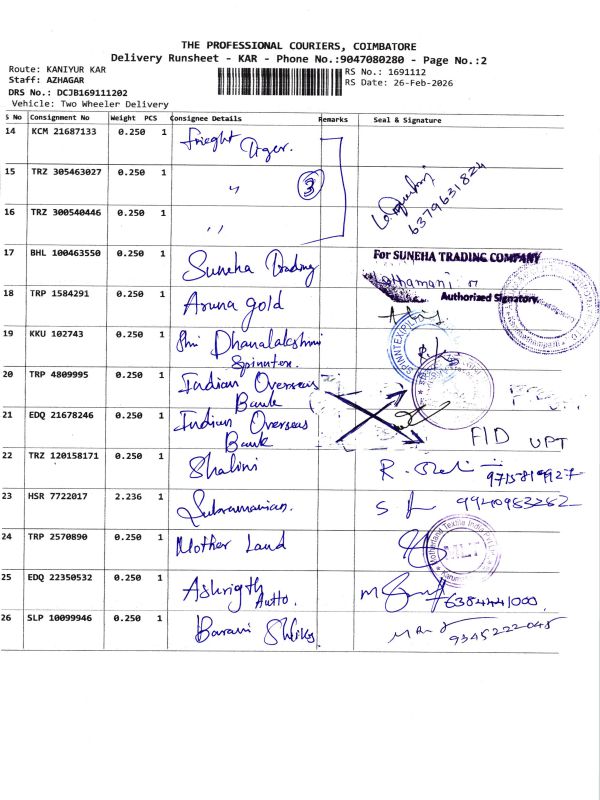 THE PROFESSIONAL COURIERS, COIMBATORE
Delivery Runsheet - KAR - Phone No.:9047080280 - Page No.:2
Route: KANIYUR KAR
RS No.: 1691112
Staff: AZHAGAR
RS Date: 26-Feb-2026
DRS No.: DCJB169111202
Vehicle: Two Wheeler Delivery
S No Consignment No Weight PCS Consignee Details Remarks Seal & Signature
14 KCM 21687133 0.250 1 Frieght Tiger.
15 TRZ 305463027 0.250 1 " 3 6379631824
16 TRZ 300540446 0.250 1 "
17 BHL 100463550 0.250 1 Suneha Trading For SUNEHA TRADING COMPANY
Authorized Signatory
18 TRP 1584291 0.250 1 Aruna gold
19 KKU 102743 0.250 1 Shri Dhanalakshmi
Spinntex.
20 TRP 4809995 0.250 1 Indian Overseas
Bank
21 EDQ 21678246 0.250 1 Indian Overseas
Bank FID UPT
22 TRZ 120158171 0.250 1 Shalini
23 HSR 7722017 2.236 1 Subramanian.
24 TRP 2570890 0.250 1 Mother Land
25 EDQ 22350532 0.250 1 Ashrigth
Autto. 6384441000.
26 SLP 10099946 0.250 1 Barani 9345222045